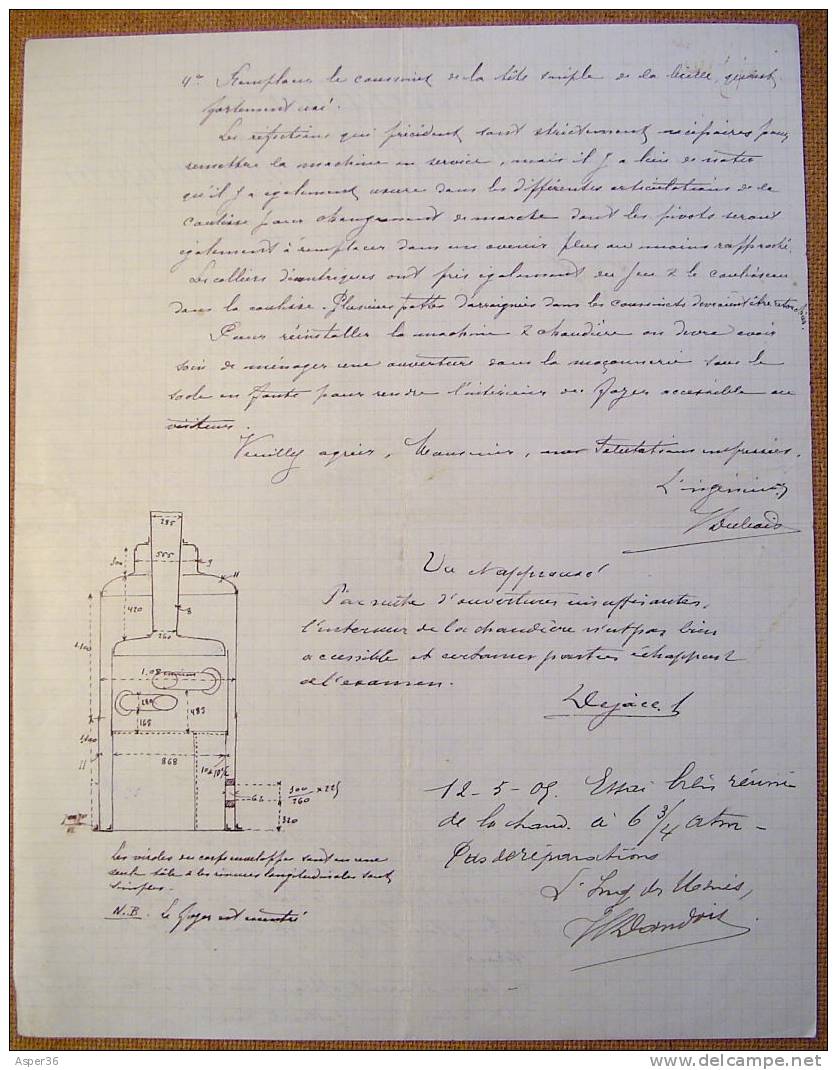 4° Remplacer le coussinet de la tête simple de la bielle, qui est
fortement usé.
Les réfections qui précèdent sont strictement nécessaires pour
remettre la machine en service, mais il y a lieu de noter
qu'il y a également usure dans les différentes articulations de la
coulisse pour changement de marche dont les pivots seront
également à remplacer dans un avenir plus ou moins rapproché.
Les colliers d'excentriques ont pris également du jeu & le coulisseau
dans la coulisse. Plusieurs pattes d'araignées dans les coussinets devraient être
Pour réinstaller la machine & chaudière on devra avoir
soin de ménager une ouverture dans la maçonnerie sous le
socle en fonte pour rendre l'intérieur du foyer accessible au
visiteur.
Veuillez agréer, Monsieur, nos salutations empressées.
L'ingénieur
Vu & approuvé
Par suite d'ouvertures insuffisantes,
l'intérieur de la chaudière n'est pas bien
accessible et certaines parties échappent
à l'examen.
Dejace
12-5-05. Essai très réussi
de la chaud. à 6 3/4 atm -
Pas de réparations
L'Ing des Mines,
285
300
555
9
11
420
8
260
1100
1.08
280
165
485
1100
11
868
10 x 18
65
300/260 x 225
320
Les viroles du corps enveloppe sont en une
seule tôle & les rivures longitudinales sont
simples.
N.B. Le foyer est
Asper36
www.delcampe.net